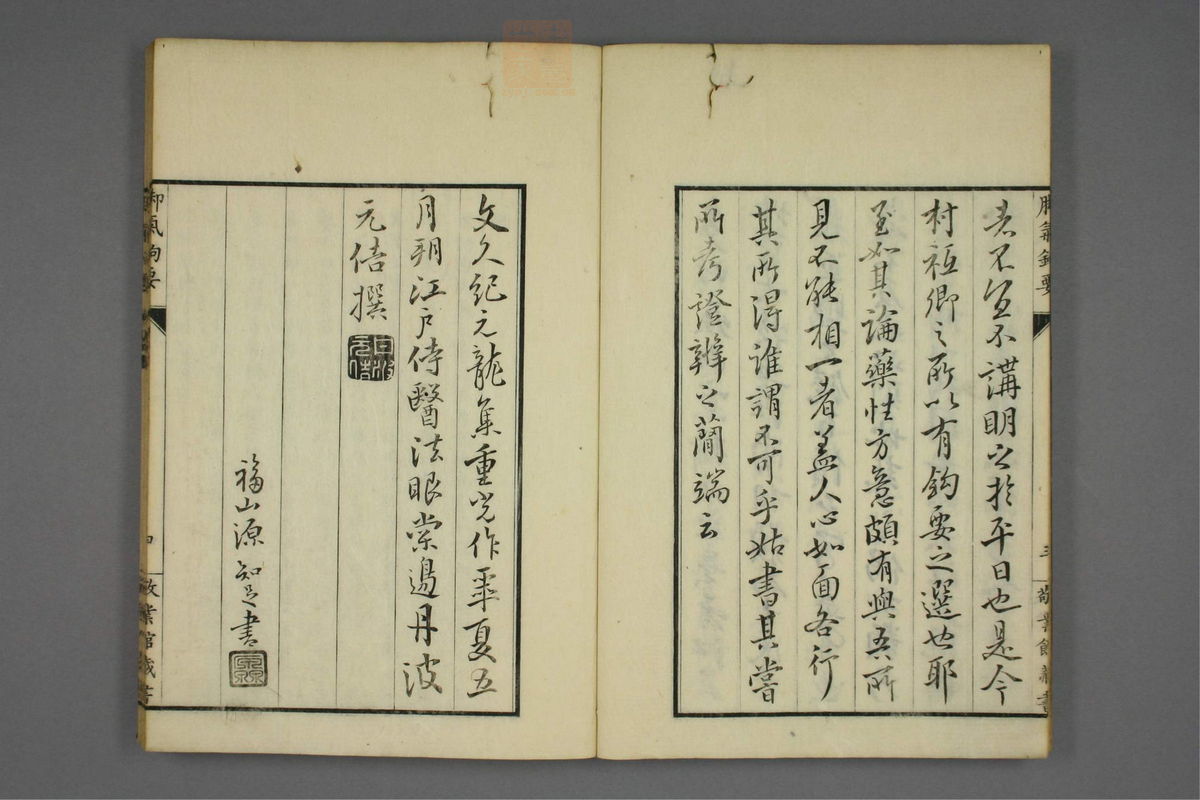 者不宜不講明之於平日也是今
村祗卿之所以有鈎要之選也耶
至如其論藥性方意頗有與吾所
見不能相一者盖人心如面各行
其所得誰謂不可乎姑書其嘗
所考證辨之簡端云
脚氣鈎要
三
敬業館藏書
文久紀元龍集重光作噩夏五
月朔江戶侍醫法眼棠邊丹波
元佶撰
福山源知足書
脚氣鈎要
四
敬業館藏書